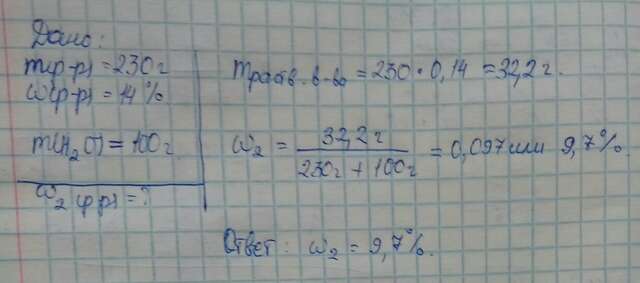 Дано:
m(р-р) = 230г
ω(р-р) = 14%
m(H₂O) = 100г
ω₂(р-р) = ?
mраств. в-ва = 230 · 0,14 = 32,2г.
ω₂ = 32,2г / 230г + 100г = 0,097 или 9,7%.
Ответ: ω₂ = 9,7%.